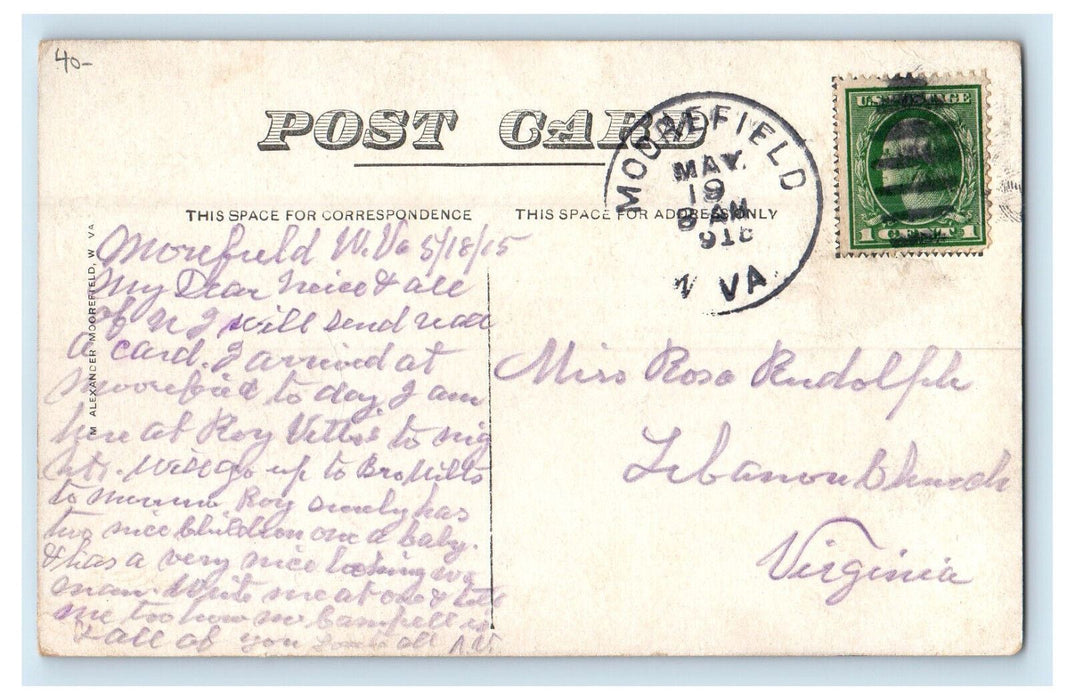 40-
POST CARD
THIS SPACE FOR CORRESPONDENCE
THIS SPACE FOR ADDRESS ONLY
MOOREFIELD
MAY.
19
8 AM
VA.
U.S. POSTAGE
1 CENT 1
M ALEXANDER MOOREFIELD, W VA
Morefield W. Va 5/18/15
My Dear Neice & all
of I will send
a card. I arrived at
to day. I am
here at Roy to nig
ht. Will go up to Bro
to Roy surely has
two nice children one a baby.
& has a very nice looking wo
man. Write me at once & tell
me too how is
& all of you all A.V.
Miss Rosa Rudolph
Lebanon Church
Virginia